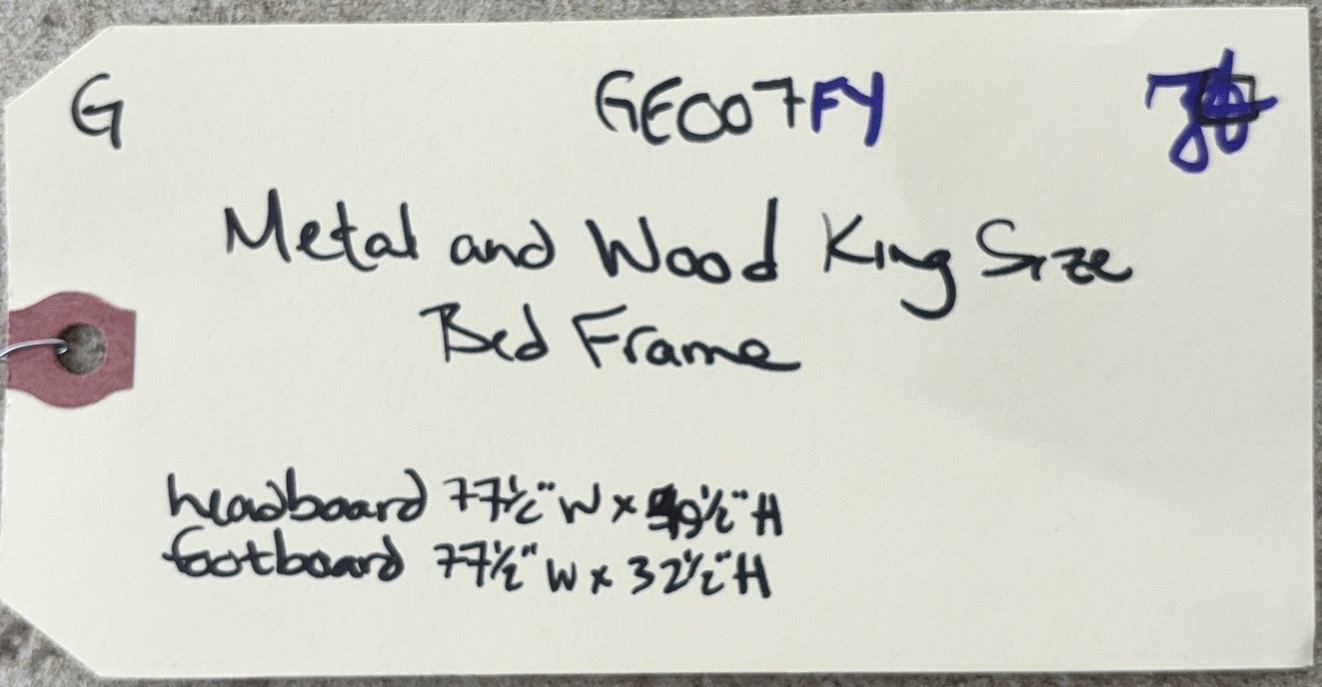 G GEOO7FY
Metal and Wood King Size
Bed Frame
headboard 77½" W x 49½" H
footboard 77½" W x 32½" H